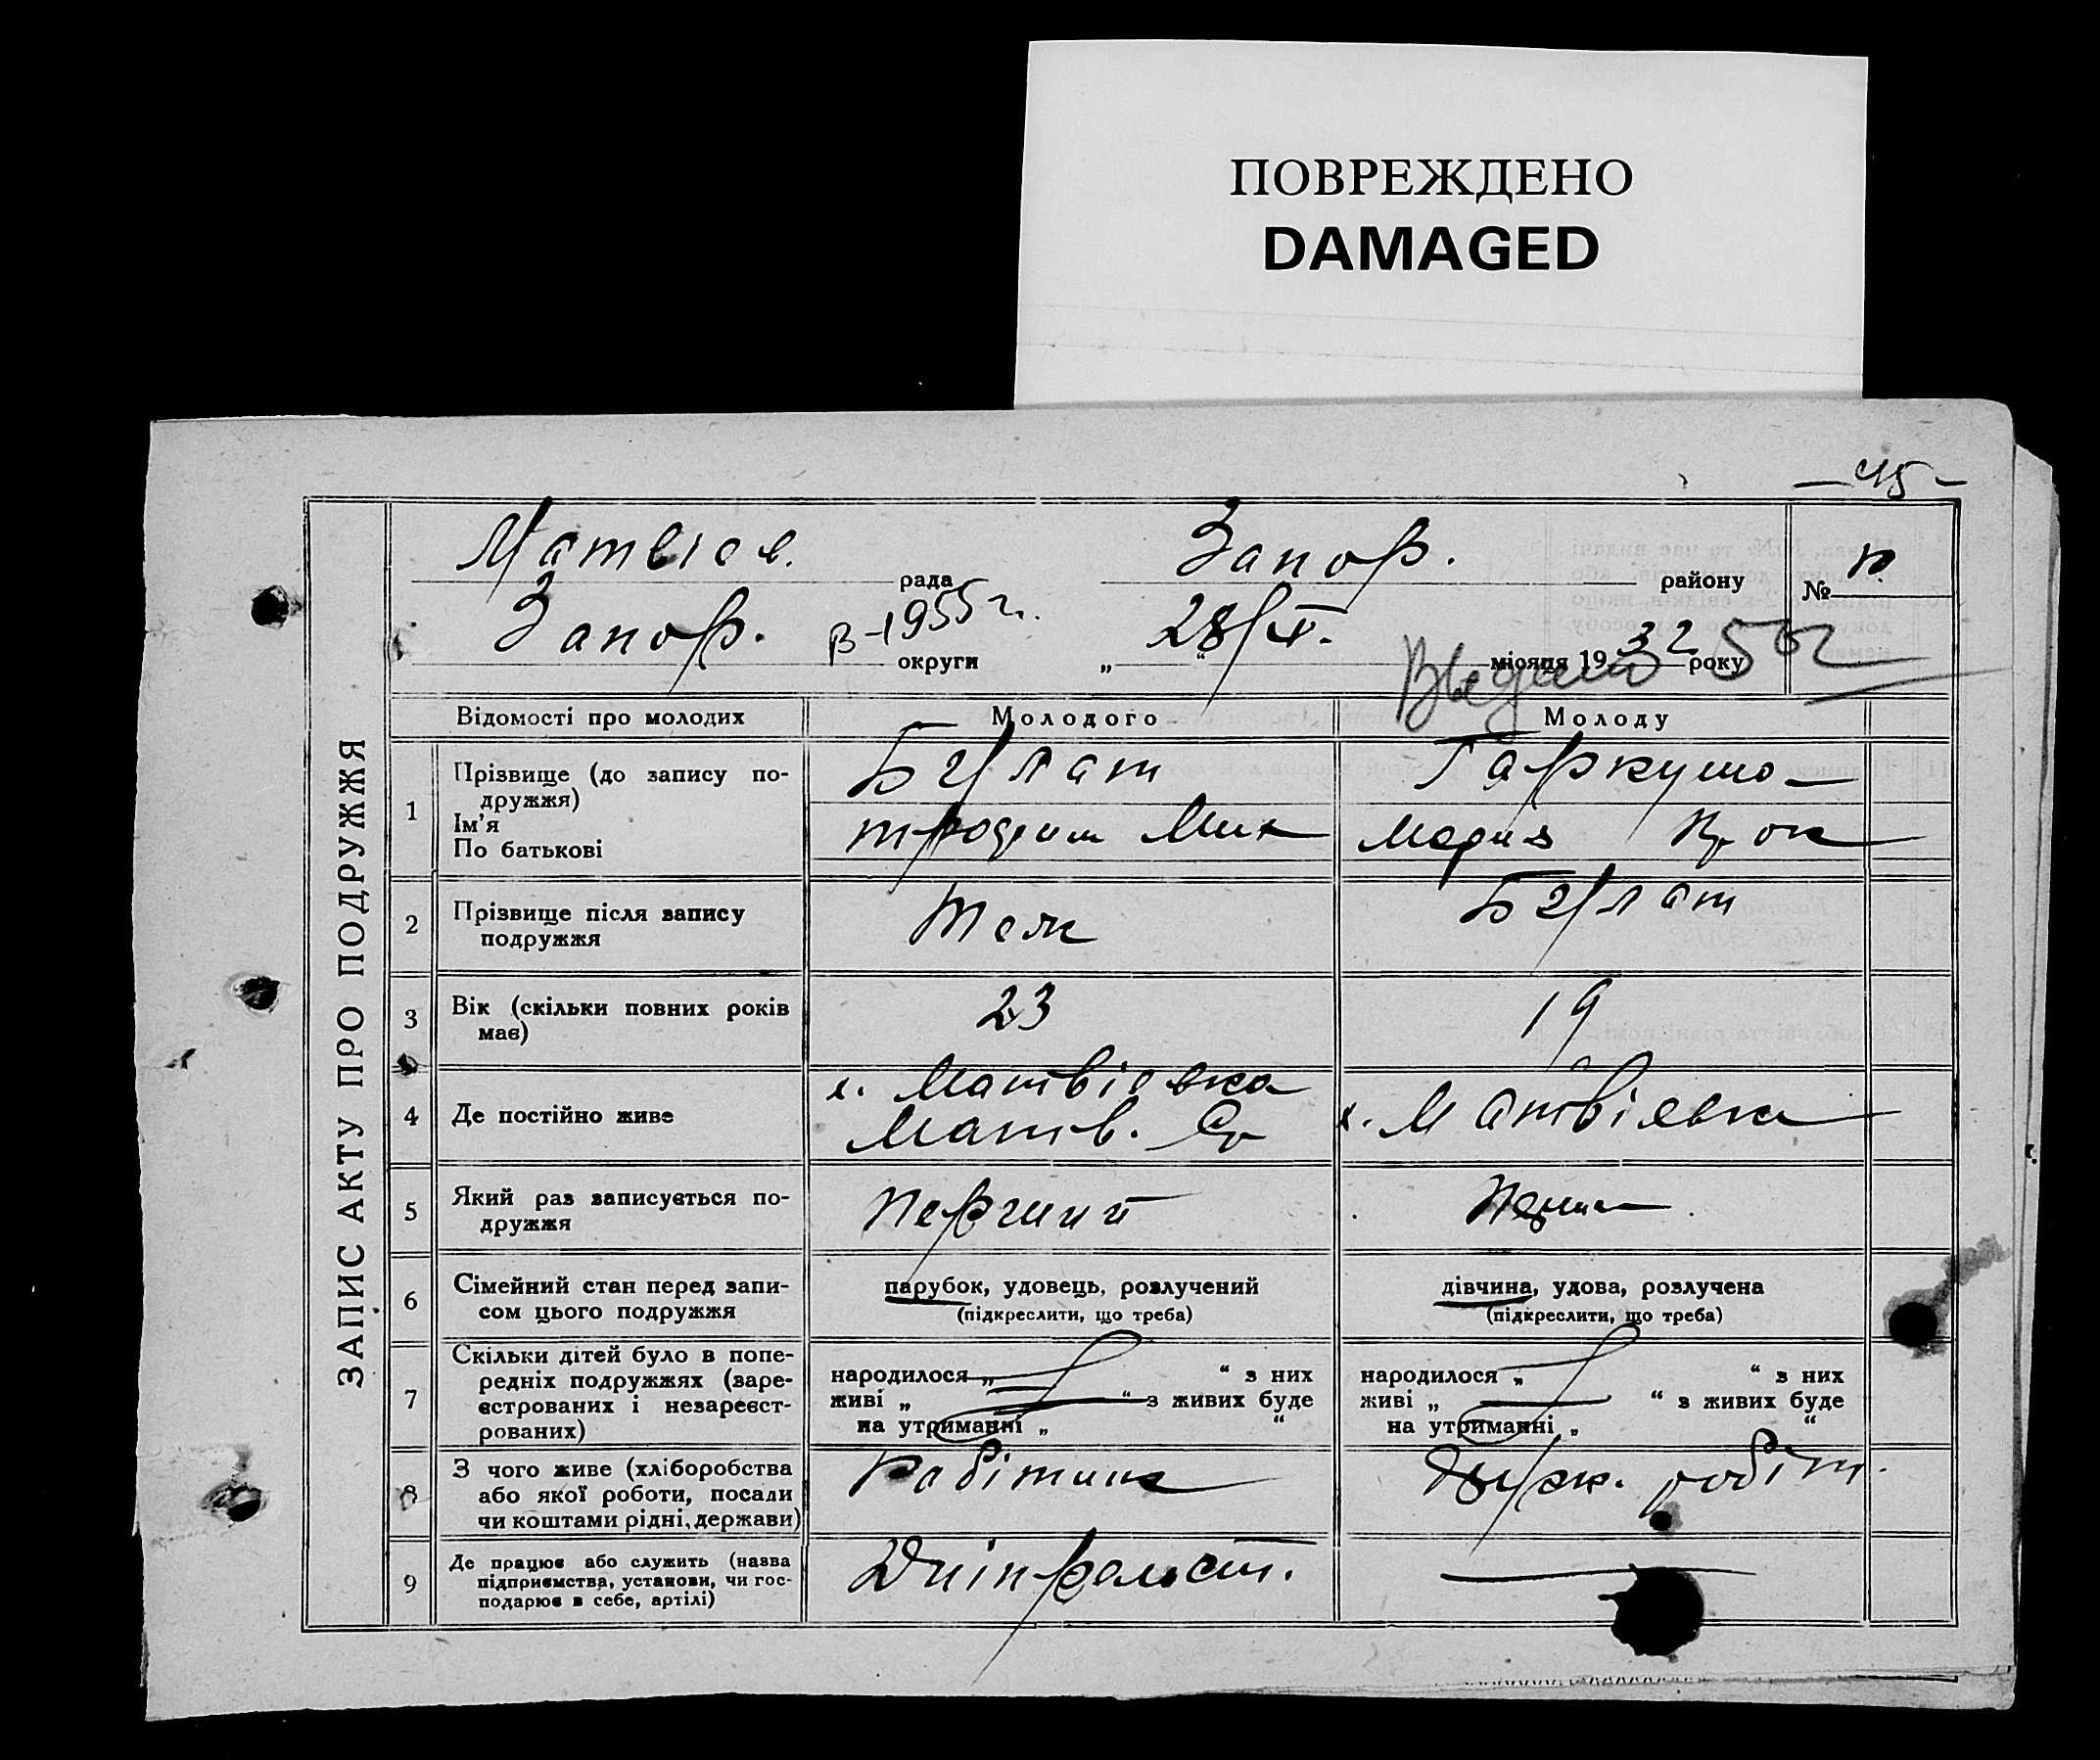 ПОВРЕЖДЕНО
DAMAGED
—45—
Матвієв. рада Запор. району №
Запор. округи В-1955 г. „28/ “ місяця 1932 року
ЗАПИС АКТУ ПРО ПОДРУЖЖЯ
Відомості про молодих Молодого Молоду
1 Прізвище (до запису по-
дружжя)
Ім'я
По батькові
Гаркуша
Мария Прок
2 Прізвище після запису
подружжя
Теж
3 Вік (скільки повних років
має)
23 19
4 Де постійно живе
с. Матвієвка
Матв. с. Матвієвка
5 Який раз записується по-
дружжя
Перший Перши
6 Сімейний стан перед запи-
сом цього подружжя
парубок, удовець, розлучений
(підкреслити, що треба)
дівчина, удова, розлучена
(підкреслити, що треба)
7 Скільки дітей було в попе-
редніх подружжях (заре-
єстрованих і незареєст-
рованих)
народилося „ “ з них
живі „ “ з живих буде
на утриманні „ “
народилося „ “ з них
живі „ “ з живих буде
на утриманні „ “
8 З чого живе (хліборобства
або якої роботи, посади
чи коштами рідні, держави)
Робітник робітн.
9 Де працює або служить (назва
підприємства, установи, чи гос-
подарює в себе, артілі)